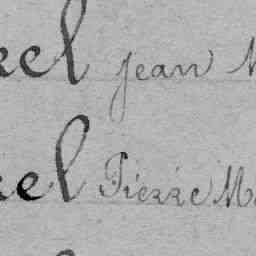 el Jean M
el Pierre Ma